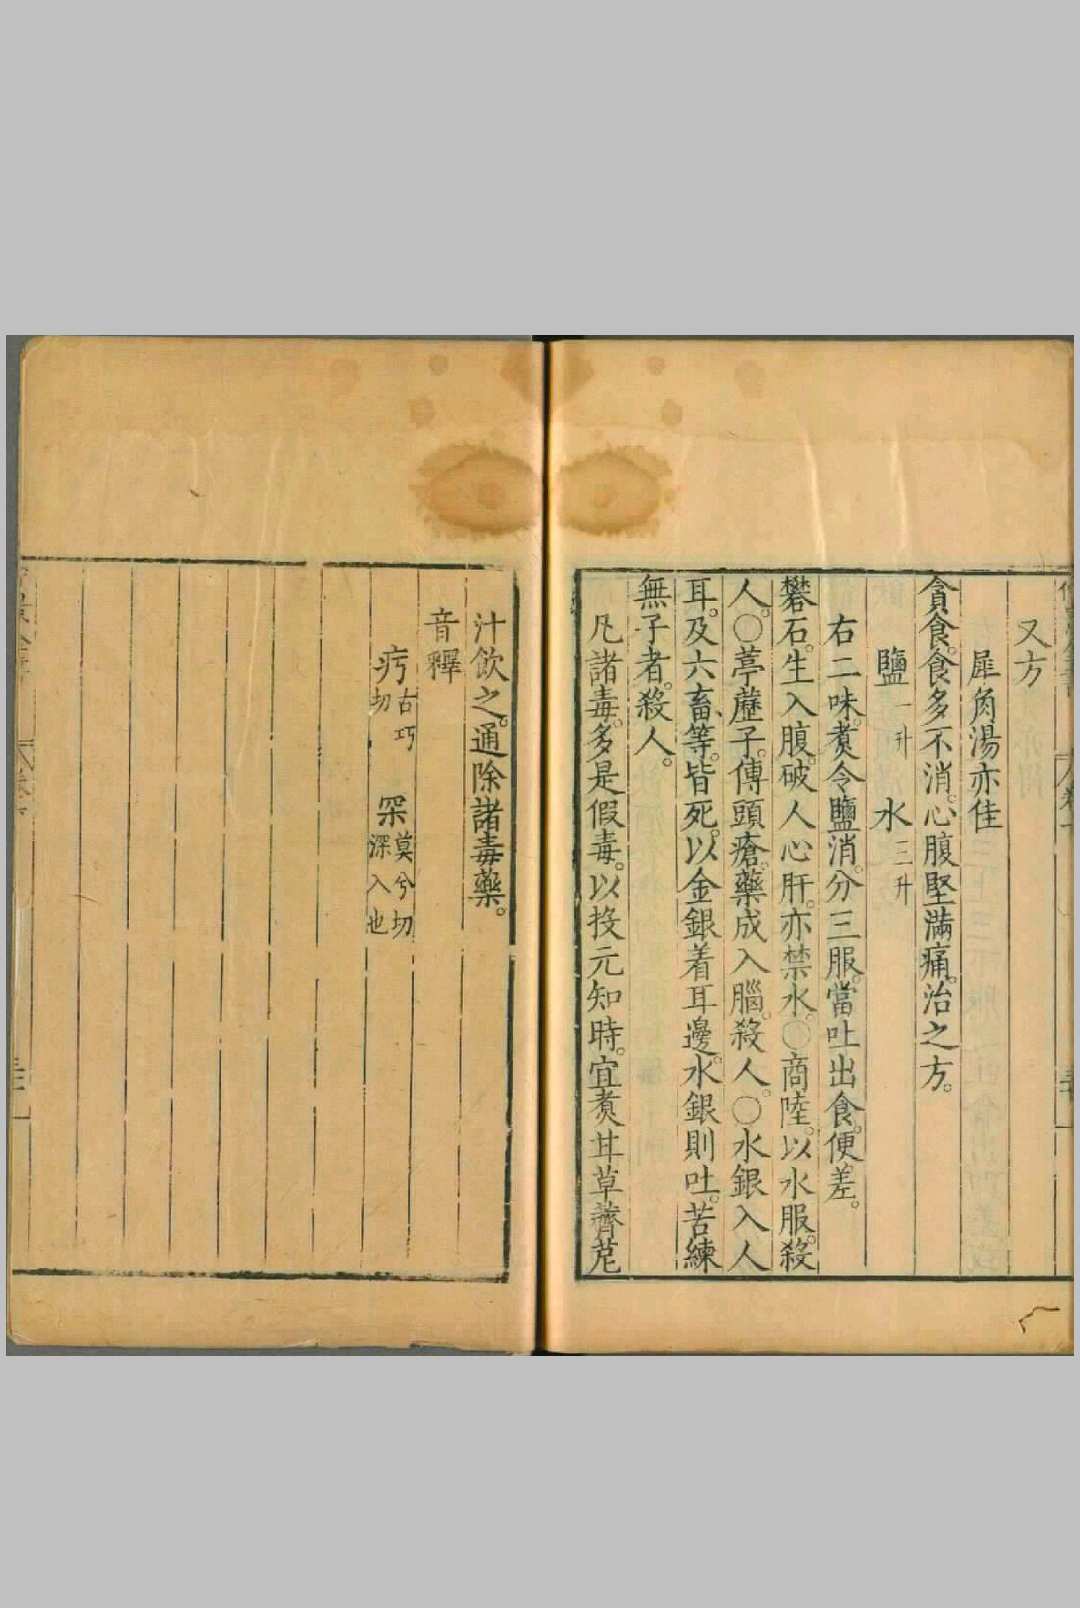 又方
犀角湯亦佳
貪食。食多不消。心腹堅滿痛。治之方。
鹽一升 水三升
右二味。煑令鹽消。分三服。當吐出食。便差。
礬石。生入腹。破人心肝。亦禁水。〇商陸。以水服。殺
人。〇葶藶子。傅頭瘡。藥成入腦。殺人。〇水銀入人
耳。及六畜等。皆死。以金銀着耳邊。水銀則吐。苦練
無子者。殺人。
凡諸毒。多是假毒。以投元知時。宜煑甘草薺苨
汁飲之。通除諸毒藥。
音釋
㽱古巧切 罙莫兮切深入也